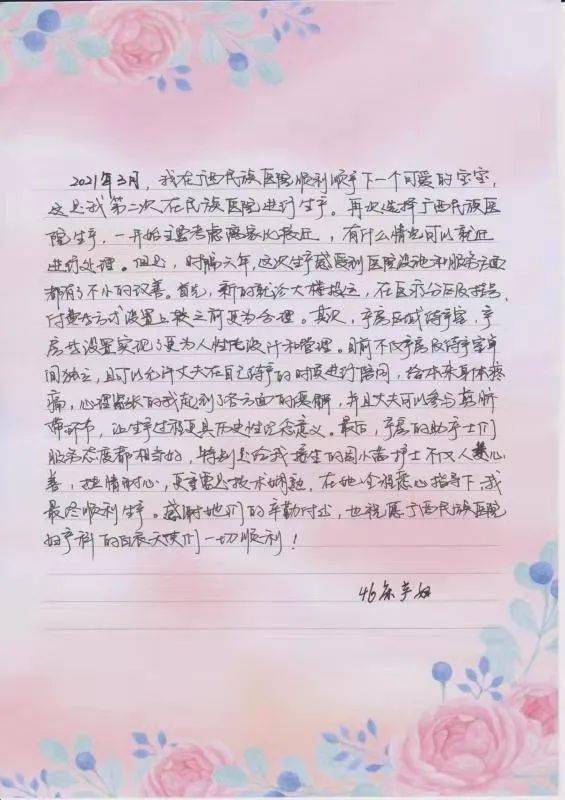 2021年3月，我在广西民族医院顺利顺产下一个可爱的宝宝，
这是我第二次在民族医院进行生产。再次选择广西民族医
院生产，一开始主要考虑离家比较近，有什么情况可以就近
进行处理。但是，时隔六年，这次生产感受到医院设施和服务方面
都有了不小的改善。首先，新的就诊大楼投运，在医疗分区及挂号、
付费等方式设置上较之前更为合理。其次，产房区域待产室、产
房等设置实现了更为人性化设计和管理。目前不仅产房及待产室单
间独立，且可以允许丈夫在自己待产的时候进行陪同，给本来身体疼
痛，心理紧张的我起到了各方面的缓解，并且丈夫可以参与剪脐
带环节，让生产过程更具历史性纪念意义。最后，产房的助产士们
服务态度都相当好，特别是给我接生的周小燕护士不仅人美心
善，热情耐心，更重要是技术娴熟，在她全程悉心指导下，我
最终顺利生产。感谢她们的辛勤付出，也祝愿广西民族医院
妇产科的白衣天使们一切顺利！
46床产妇